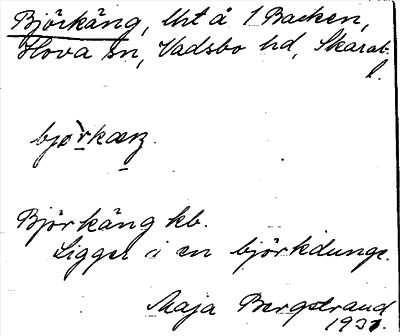 Björkäng, lht å 1 Backen,
Hova sn, Vadsbo hd, Skarab.
l.
Björkäng kb.
Ligger i en björkdunge.
Maja Bergstrand